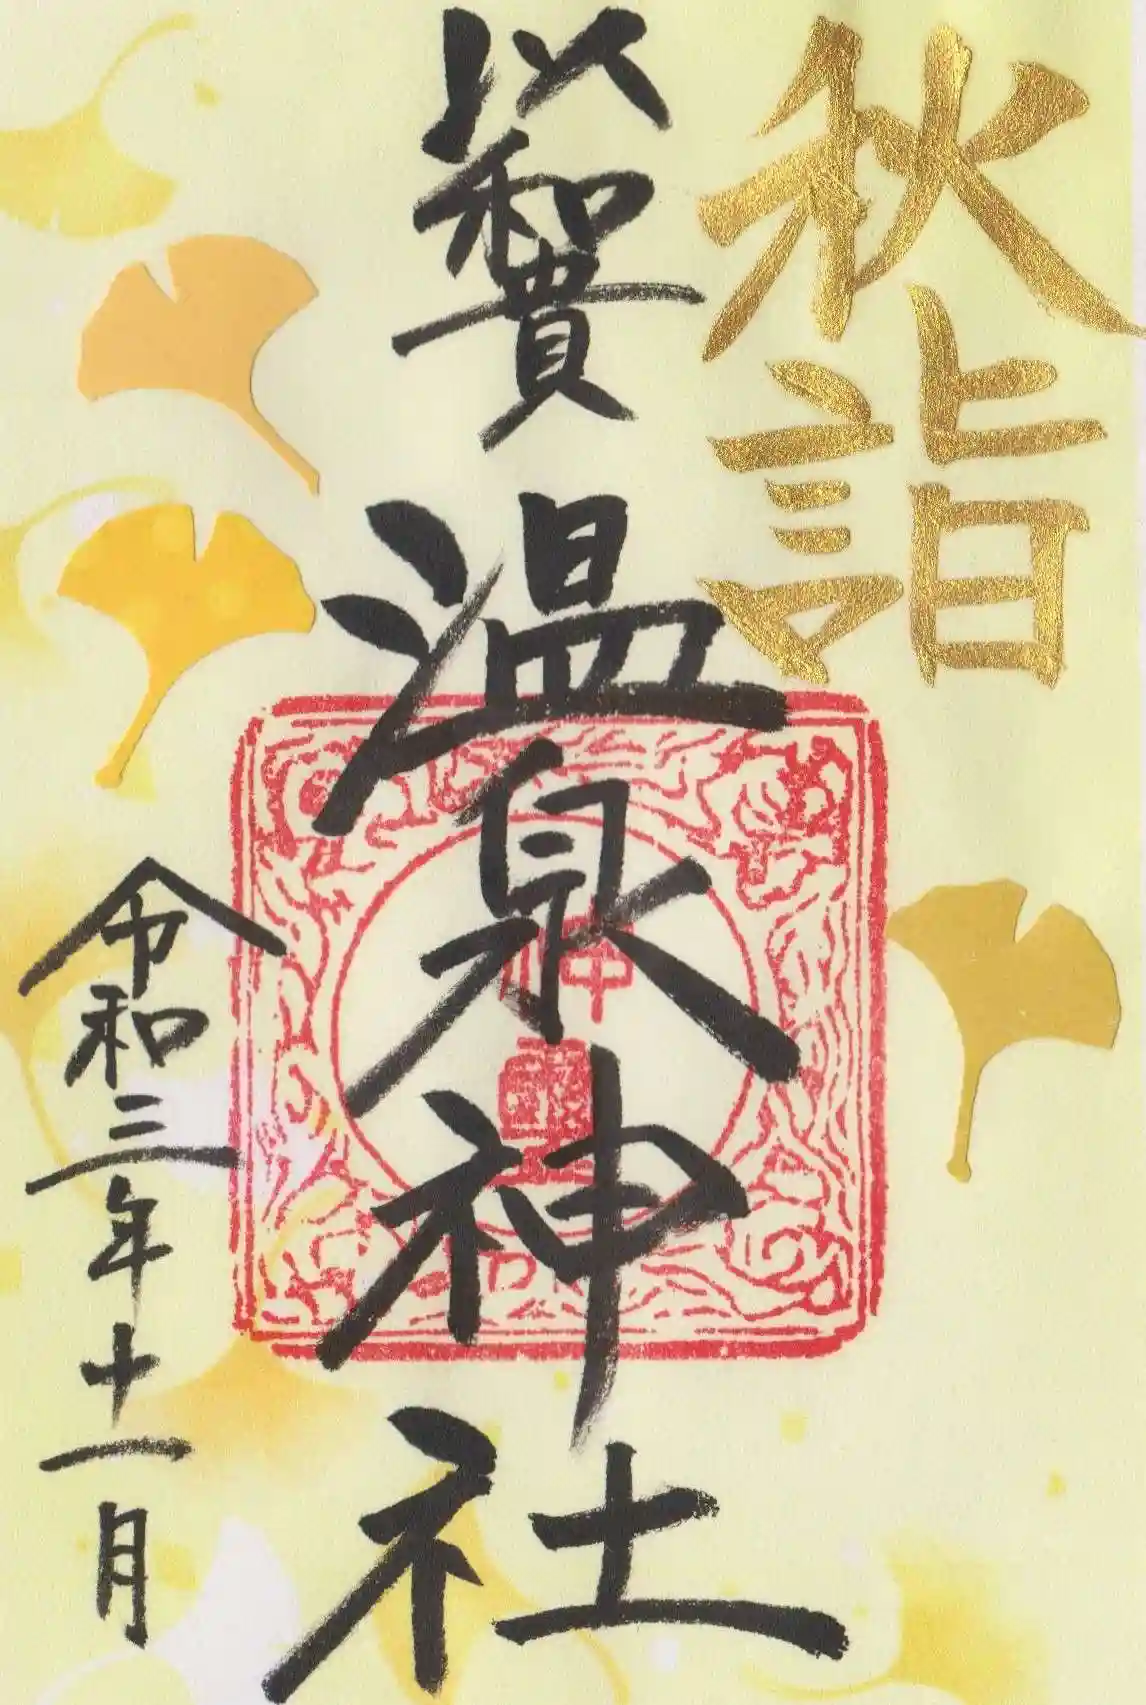 秋詣
以和貴 温泉神社
令和三年十一月